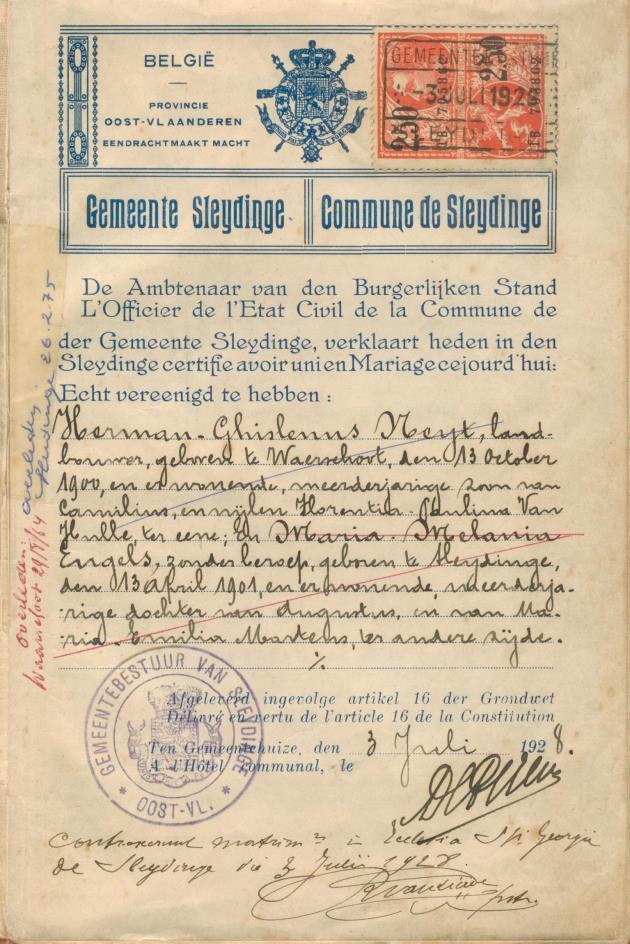 BELGIË
PROVINCIE
OOST-VLAANDEREN
EENDRACHT MAAKT MACHT
GEMEENTE
-3 JULI 1928
250
250
Gemeente Sleydinge
Commune de Sleydinge
De Ambtenaar van den Burgerlijken Stand
L'Officier de l'Etat Civil de la Commune de
der Gemeente Sleydinge, verklaart heden in den
Sleydinge certifie avoir uni en Mariage cejourd'hui:
Echt vereenigd te hebben :
Herman-Ghislenus Neyt, land-
bouwer, geboren te Waerschoot, den 13 October
1900, en er wonende, meerderjarige zoon van
Camilius, en wijlen Florentia-Paulina Van
Hulle, ter eene; En Maria Melania
Engels, zonder beroep, geboren te Sleydinge,
den 13 April 1901, en er wonende, meerderja-
rige dochter van Augustus, en van Ma-
ria-Emilia Martens, ter andere zijde.
Afgeleverd ingevolge artikel 16 der Grondwet
Délivré en vertu de l'article 16 de la Constitution
Ten Gemeentehuize, den
A l'Hôtel communal, le
3 Juli 1928.
GEMEENTEBESTUUR VAN SLEYDINGE
* OOST-VL. *
in Ecclesia Sti Georgii
de Sleydinge die 3 Julii 1928.
overleden
Sleidinge 26-2-75
Overleden:
Waarschoot 29/8/64